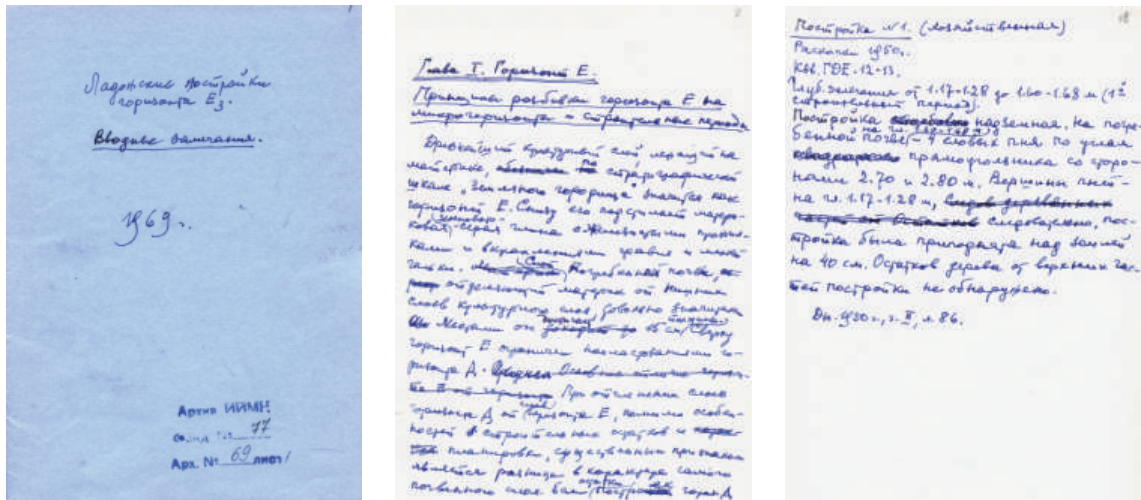 1
Ладожские постройки
горизонта Е3.
Вводные замечания.
1969 г.
Архив ИИМК
фонд № 77
Арх. № 69 лист 1
2
Глава I. Горизонт Е.
Принципы разбивки горизонта Е на
микрогоризонты и строительные периоды
Древнейший культурный слой, лежащий на
материке, по стратиграфической
шкале „Земляного городища" значится как
горизонт Е. Снизу его подстилает матери-
ковая серая глина с железистыми прожил-
ками и вкраплениями гравия и мелкой
гальки. Слой погребенной почвы,
отделяющий материк от нижних
слоев культурного слоя, довольно значителен
Местами он 15 см. Сверху
горизонт Е ограничен напластованиями го-
ризонта Д. Основные отличия горизон-
та Е от горизонта При отчленении слоев
горизонта Д от горизонта Е, помимо особен-
ностей в строительных остатков и
планировки, существенным признаком
является разница в характере самого
почвенного слоя.
18
Постройка №1. (хозяйственная)
Раскопки 1950 г.
Кв. ГДЕ-12-13.
Глуб. залегания от 1.17-1.28 до 1.60-1.68 м (1й
строительный период).
Постройка надземная. На погре-
бенной почве на гл. 1.60-1.68 м) – 4 еловых пня по углам
прямоугольника со сторо-
нами 2.70 и 2.80 м. Вершины пней -
на гл. 1.17-1.28 м, следов деревянных
частей от Остатков следовательно, пос-
тройка была приподнята над землей
на 40 см. Остатков дерева от верхних час-
тей постройки не обнаружено.
Дн. 1950 г., т. II, л. 86.